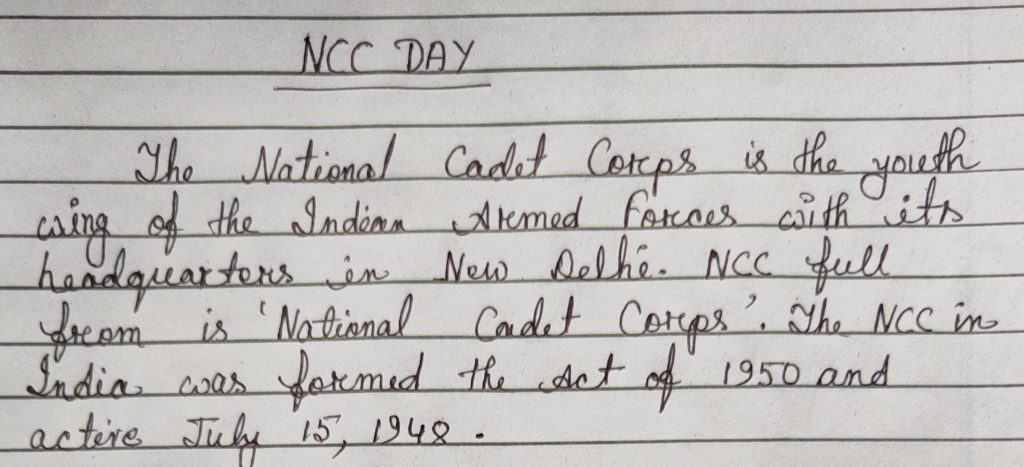 NCC DAY
The National Cadet Corps is the youth
wing of the Indian Armed Forces with its
headquarters in New Delhi. NCC full
from is 'National Cadet Corps'. The NCC in
India was formed the Act of 1950 and
active July 15, 1948.